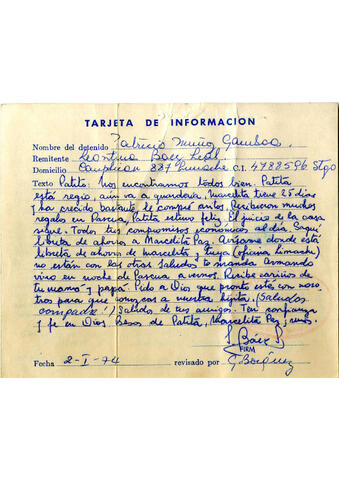 TARJETA DE INFORMACION
Nombre del detenido Patricio Muñoz Gamboa
Remitente Leontina Baez Leal
Domicilio Campichan 887 Limache C.I. 4788596 Stgo
Texto Patito: Nos encontramos todos bien. Patita
está regio, aun va a guardería, Marcelita tiene 25 dias
y ha crecido bastante, le compré aritos. Recibieron muchos
regalos en Pascua, Patita estuvo feliz. El juicio de la casa
sigue. Todos tus compromisos económicos al día. Saqué
libreta de ahorro a Marcelita Paz. Avísame donde está
libreta de ahorro de Marcelita y tuya (oficina Limache)
no están con las otras. Saludos te manda Armando
vino en noche de Pascua a vernos. Recibe cariños de
tu mamá y papá. Pido a Dios que pronto estés con noso
tros para que conozcas a nuestra hijita. (Saludos
compadre) Saludos de tus amigos. Ten confianza
y fe en Dios. Besos de Patita, Marcelita Paz y míos.
L Báez L
FIRMA
Fecha 2-I-74 revisado por